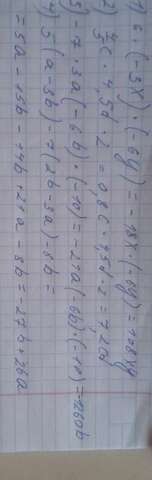 1) 6 · (-3x) · (-6y) = -18x · (-6y) = 108xy
2) 4/5c · 4,5d · 2 = 0,8c · 4,5d · 2 = 7,2cd
3) -7 · 3a(-6b) · (-10) = -21a(-6b) · (-10) = -1260b
4) 5(a-3b) - 7(2b-3a) - 8b =
= 5a - 15b - 14b + 21a - 8b = -27b + 26a